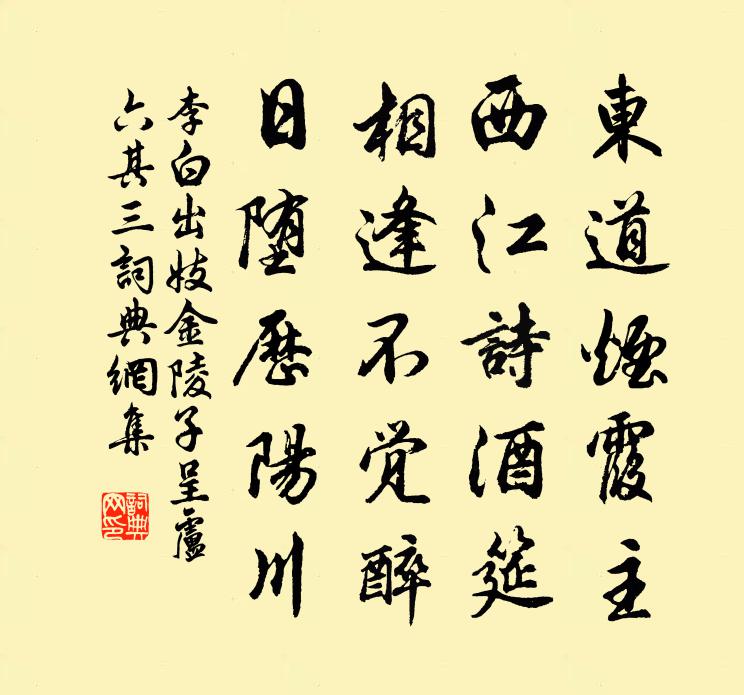 東道煙霞主
西江詩酒筵
相逢不觉醉
日堕歷陽川
李白出妓金陵子呈盧
六其三詞典網集
詞典
网印